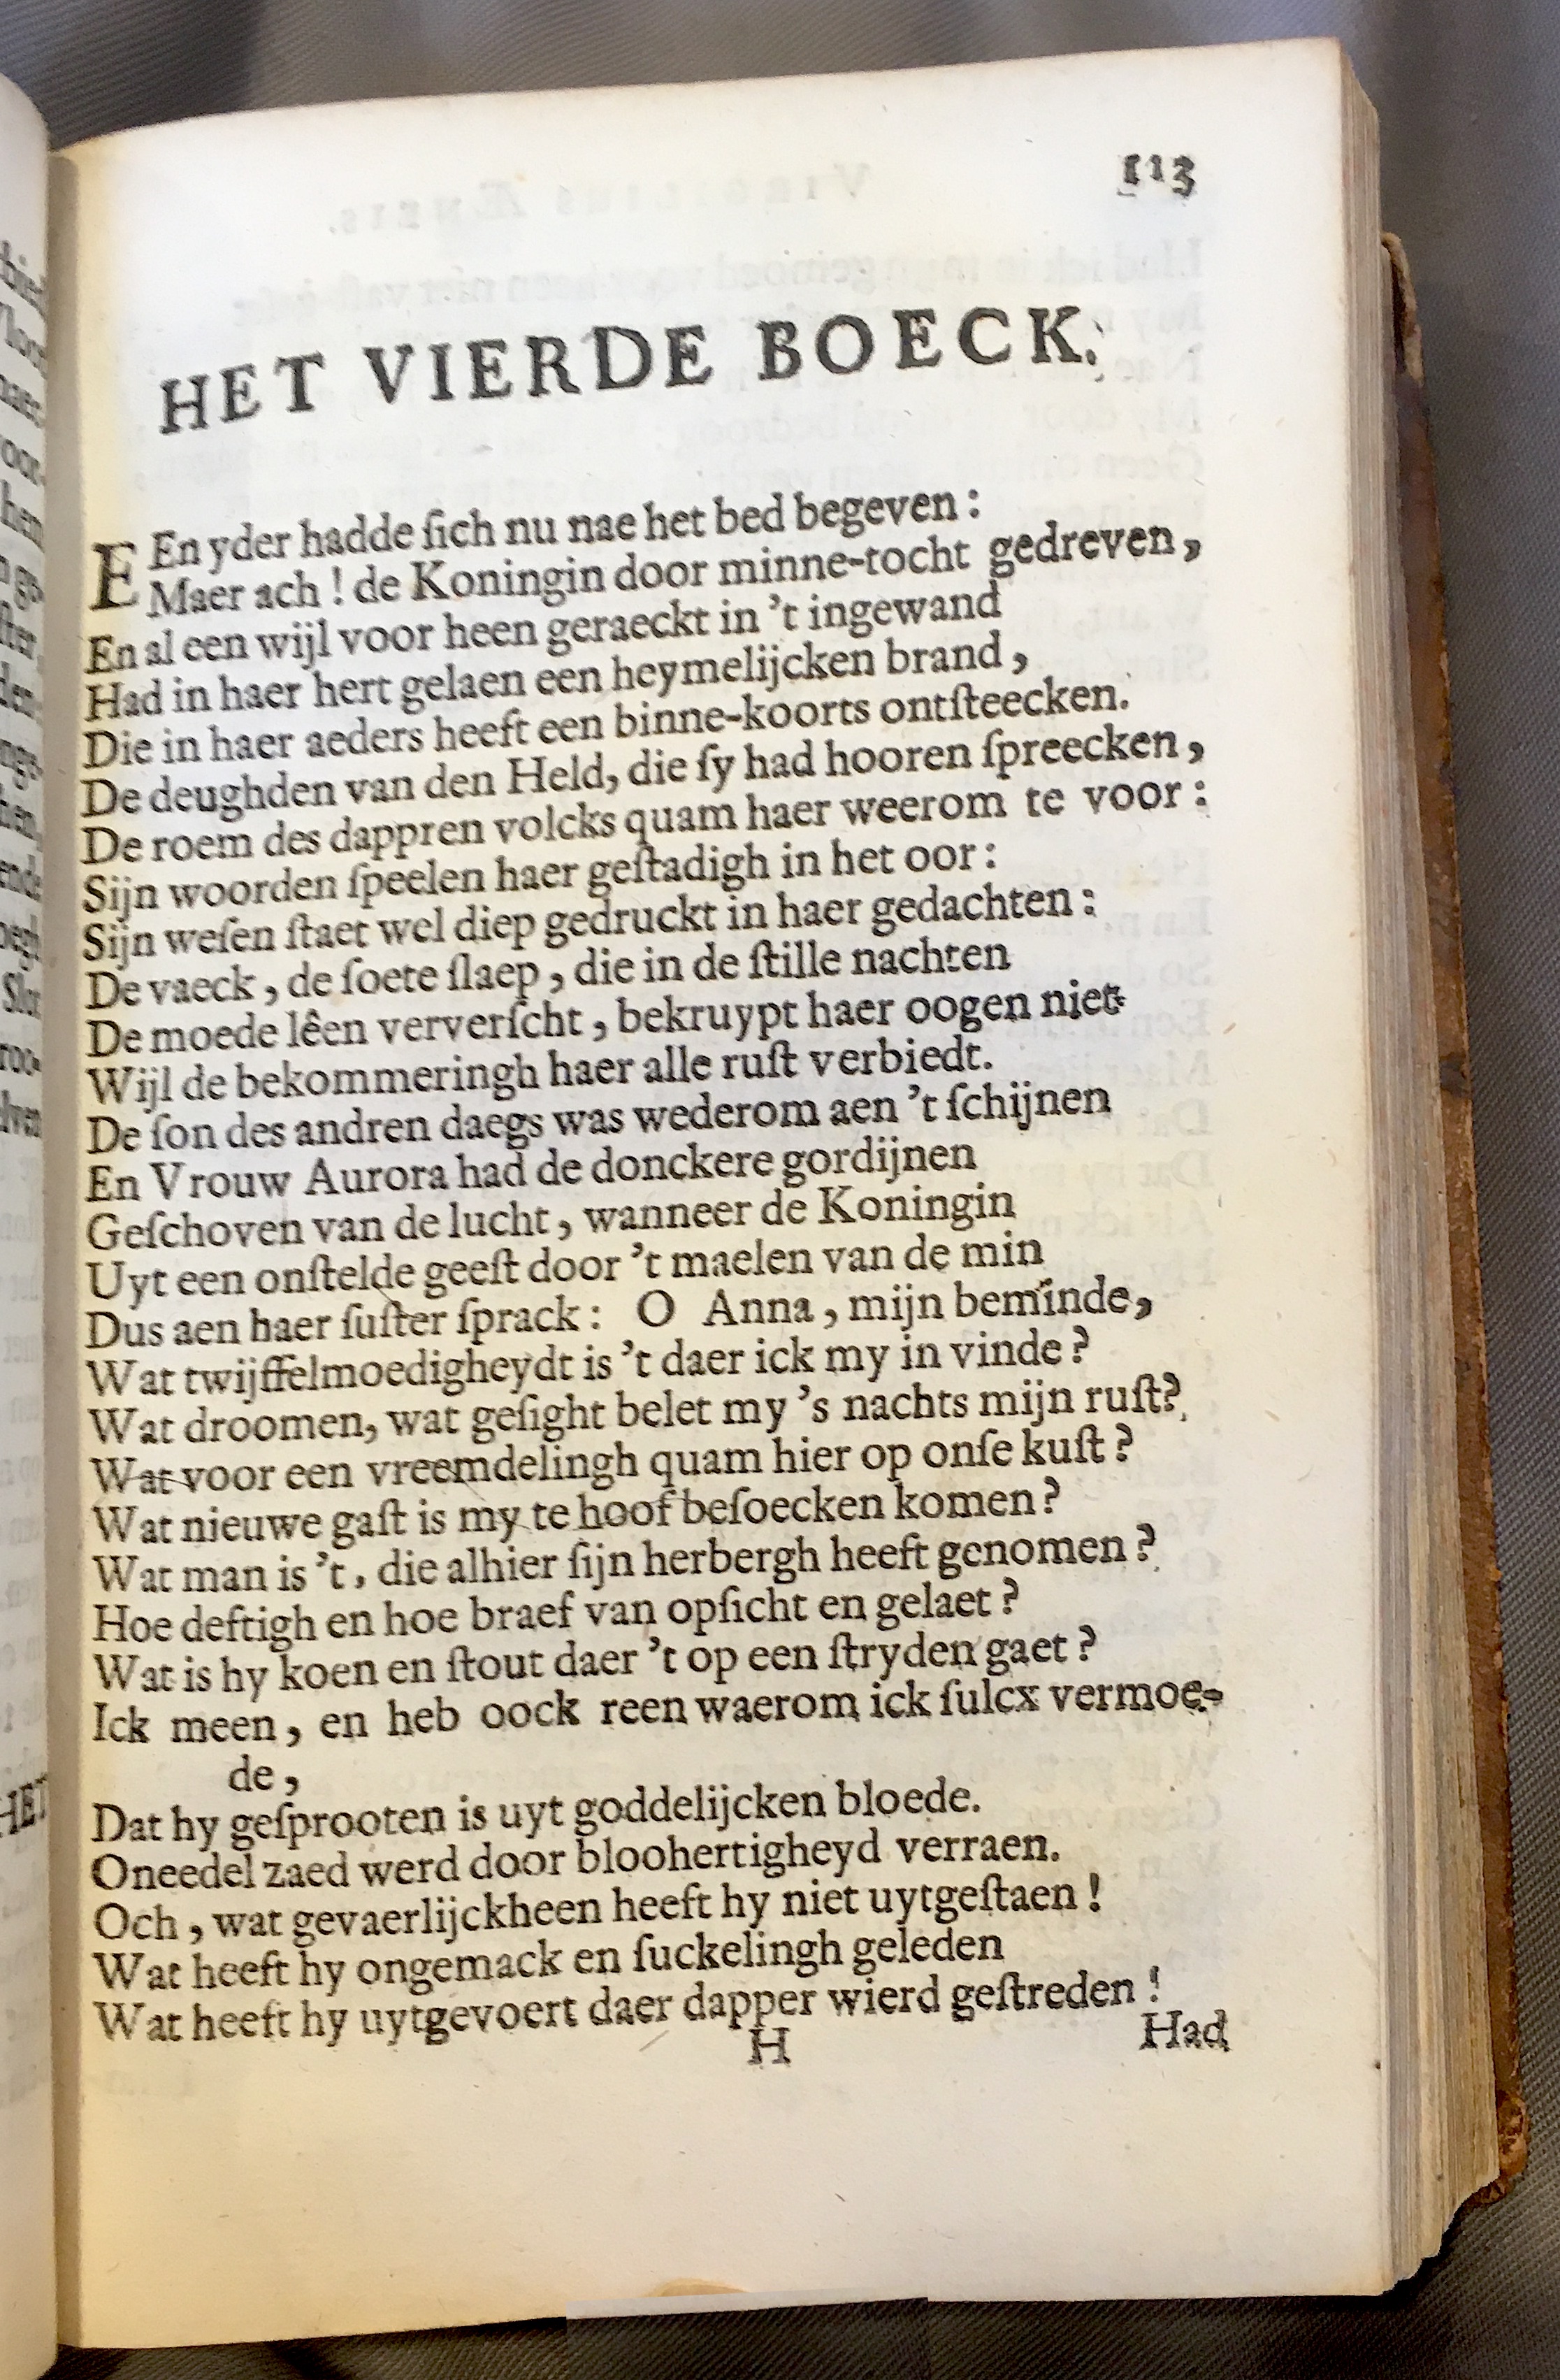 113
HET VIERDE BOECK.
EEn yder hadde ſich nu nae het bed begeven :
Maer ach ! de Koningin door minne-tocht gedreven,
En al een wijl voor heen geraeckt in 't ingewand
Had in haer hert gelaen een heymelijcken brand,
Die in haer aeders heeft een binne-koorts ontſteecken.
De deughden van den Held, die ſy had hooren ſpreecken,
De roem des dappren volcks quam haer weerom te voor :
Sijn woorden ſpeelen haer geſtadigh in het oor :
Sijn weſen ſtaet wel diep gedruckt in haer gedachten :
De vaeck, de ſoete ſlaep, die in de ſtille nachten
De moede lêen ververſcht, bekruypt haer oogen niet
Wijl de bekommeringh haer alle ruſt verbiedt.
De ſon des andren daegs was wederom aen 't ſchijnen
En Vrouw Aurora had de donckere gordijnen
Geſchoven van de lucht, wanneer de Koningin
Uyt een onſtelde geeſt door 't maelen van de min
Dus aen haer ſuſter ſprack : O Anna, mijn beminde,
Wat twijffelmoedigheydt is 't daer ick my in vinde ?
Wat droomen, wat geſight belet my 's nachts mijn ruſt?
Wat voor een vreemdelingh quam hier op onſe kuſt ?
Wat nieuwe gaſt is my te hoof beſoecken komen ?
Wat man is 't, die alhier ſijn herbergh heeft genomen ?
Hoe deftigh en hoe braef van opſicht en gelaet ?
Wat is hy koen en ſtout daer 't op een ſtryden gaet ?
Ick meen, en heb oock reen waerom ick ſulcx vermoe-
de,
Dat hy geſprooten is uyt goddelijcken bloede.
Oneedel zaed werd door bloohertigheyd verraen.
Och, wat gevaerlijckheen heeft hy niet uytgeſtaen !
Wat heeft hy ongemack en ſuckelingh geleden
Wat heeft hy uytgevoert daer dapper wierd geſtreden !
H Had